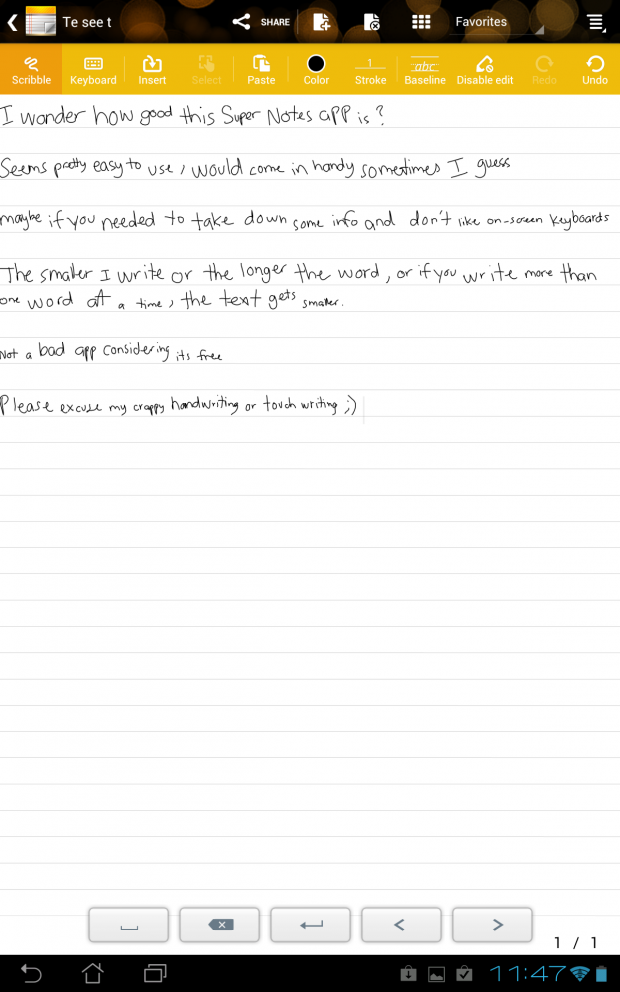 Te see t SHARE Favorites
Scribble Keyboard Insert Select Paste Color 1 Stroke abc Baseline Disable edit Redo Undo
I wonder how good this Super Notes app is?
Seems pretty easy to use, would come in handy sometimes I guess
maybe if you needed to take down some info and don't like on-screen keyboards
The smaller I write or the longer the word, or if you write more than
one word at a time, the text gets smaller.
Not a bad app considering its free
Please excuse my crappy handwriting or touch writing ;)
1 / 1
11:47